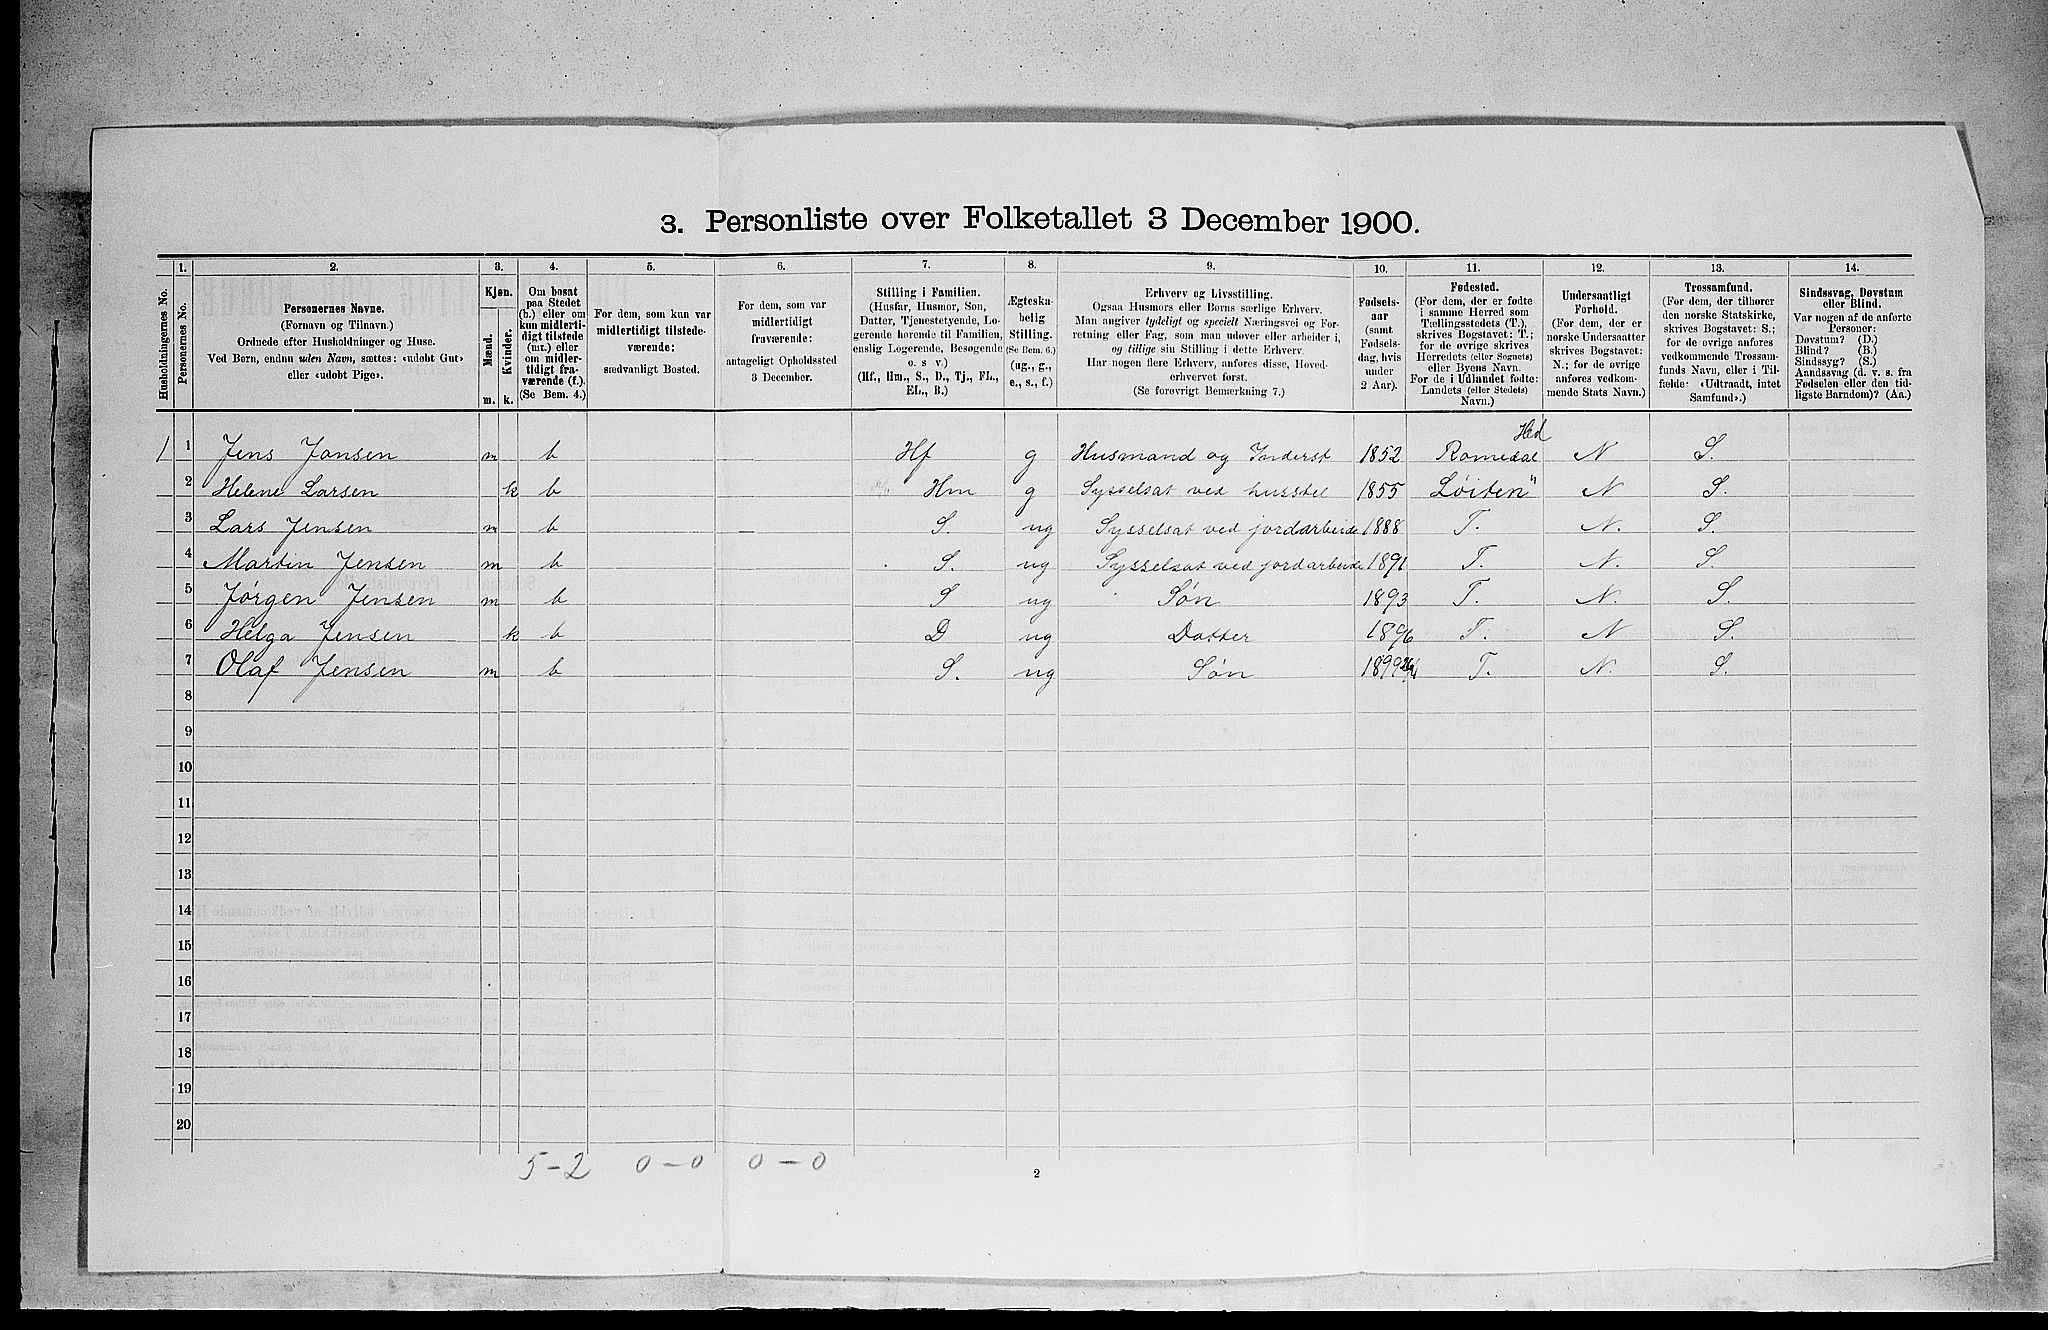 3. Personliste over Folketallet 3 December 1900.
1. 2. 3. 4. 5. 6. 7. 8. 9. 10. 11. 12. 13. 14.
Husholdningernes No.
Personernes No.
Personernes Navne.
(Fornavn og Tilnavn.)
Ordnede efter Husholdninger og Huse.
Ved Børn, endnu uden Navn, sættes: «udøbt Gut»
eller «udøbt Pige».
Kjøn.
Mænd.
Kvinder.
m. k.
Om bosat
paa Stedet
(b.) eller om
kun midlerti-
digt tilstede
(mt.) eller
om midler-
tidigt fra-
værende (f.).
(Se Bem. 4.)
For dem, som kun var
midlertidigt tilstede-
værende:
sædvanligt Bosted.
For dem, som var
midlertidigt
fraværende:
antageligt Opholdssted
3 December.
Stilling i Familien.
(Husfar, Husmor, Søn,
Datter, Tjenestetyende, Lo-
gerende hørende til Familien,
enslig Logerende, Besøgende
o. s v.)
(Hf., Hm., S., D., Tj., FL.,
EL., B.)
Ægteska-
belig
Stilling.
(Se Bem. 6.)
(ug., g.,
e., s., f.)
Erhverv og Livsstilling.
Ogsaa Husmors eller Børns særlige Erhverv.
Man angiver tydeligt og specielt Næringsvei og For-
retning eller Fag, som man udøver eller arbeider i,
og tillige sin Stilling i dette Erhverv.
Har nogen flere Erhverv, anføres disse, Hoved-
erhvervet først.
(Se forøvrigt Bemærkning 7.)
Fødsels-
aar
(samt
Fødsels-
dag, hvis
under
2 Aar).
Fødested.
(For dem, der er fødte
i samme Herred som
Tællingsstedets (T.),
skrives Bogstavet: T.;
for de øvrige skrives
Herredets (eller Sognets)
eller Byens Navn.
For de i Udlandet fødte:
Landets (eller Stedets)
Navn.)
Undersaatligt
Forhold.
(For dem, der er
norske Undersaatter
skrives Bogstavet:
N.; for de øvrige
anføres vedkom-
mende Stats Navn.)
Trossamfund.
(For dem, der tilhører
den norske Statskirke,
skrives Bogstavet: S.;
for de øvrige anføres
vedkommende Trossam-
funds Navn, eller i Til-
fælde: «Udtraadt, intet
Samfund».)
Sindssvag, Døvstum
eller Blind.
Var nogen af de anførte
Personer:
Døvstum? (D.)
Blind? (B.)
Sindssyg? (S.)
Aandssvag (d. v. s. fra
Fødselen eller den tid-
ligste Barndom)? (Aa.)
Hed
1 1 Jens Jansen m b Hf g Husmand og Inderst 1852 Romedal N S.
2 Helene Larsen k b Hm g Sysselsat ved husstel 1855 Løiten " N S.
3 Lars Jensen m b S. ug Sysselsat ved jordarbeide 1888 T. N. S.
4 Martin Jensen m b S. ug Sysselsat ved jordarbeide 1891 T. N. S.
5 Jørgen Jensen m b S ug Søn 1893 T. N. S.
6 Helga Jensen k b D ug Datter 1896 T. N S.
7 Olaf Jensen m b S. ug Søn 1899 T. N. S.
8
9
10
11
12
13
14
15
16
17
18
19
20
5-2 0-0 0-0
2